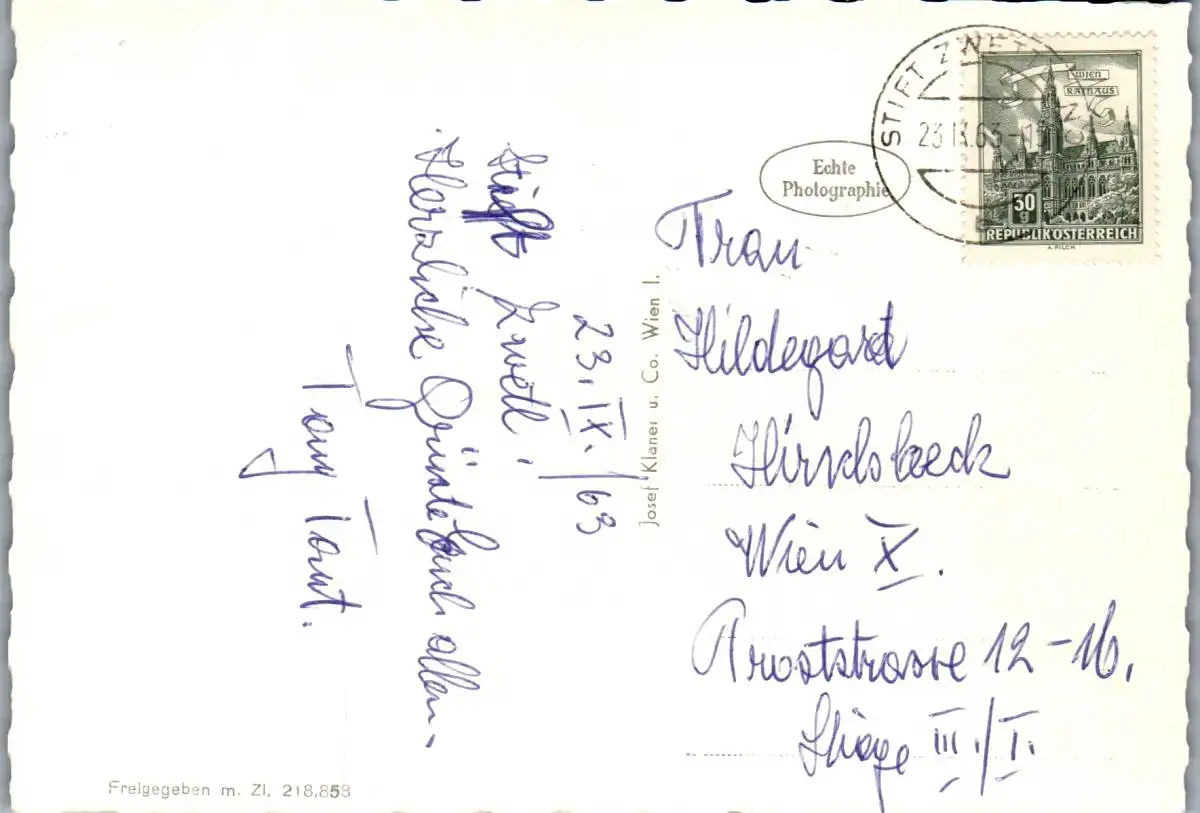 23. IX./63
Stift Zwettl.
Herzliche Grüsse Euch allen.
Tony Tont.
Josef Klaner u. Co. Wien I.
Freigegeben m. Zl. 218.858
Echte
Photographie
STIFT ZWETTL
23.IX.63-
WIEN
RATHAUS
30
g
REPUBLIK ÖSTERREICH
A. PILCH
Frau
Hildegard
Wien X.
Troststrasse 12-16.
Stiege III./I.